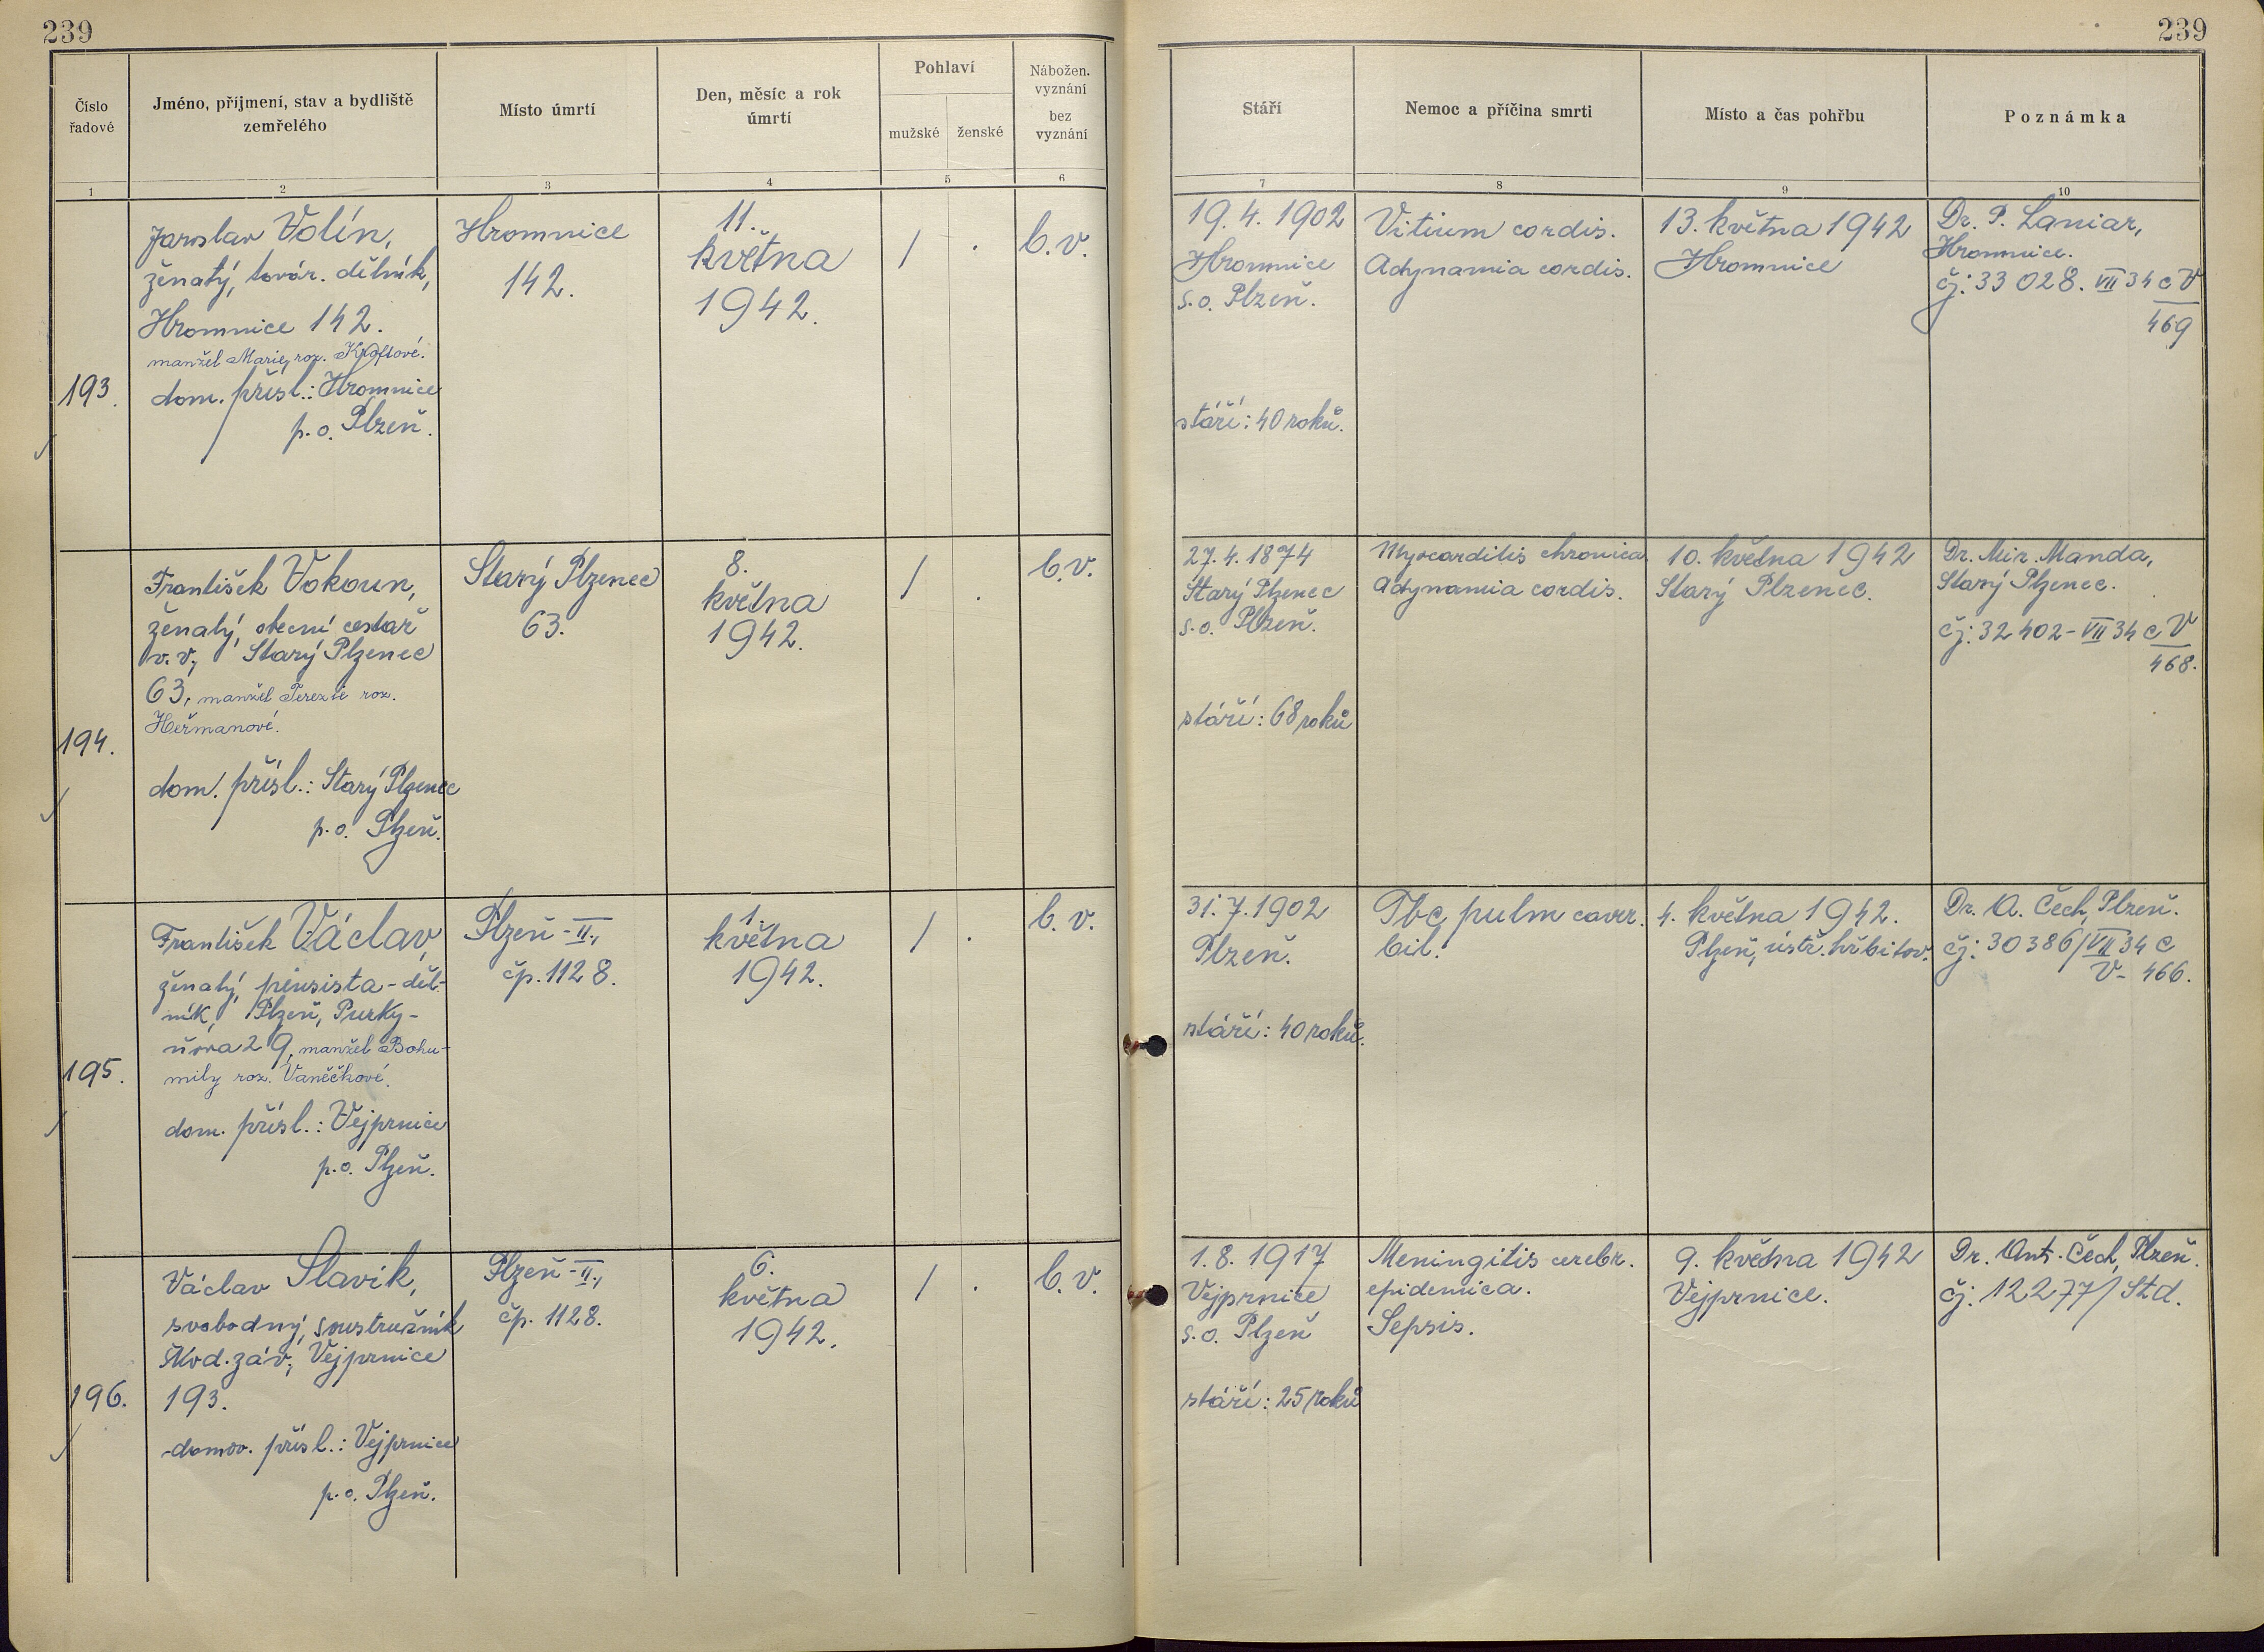 239
239
Číslo
řadové
Jméno, příjmení, stav a bydliště
zemřelého
Místo úmrtí
Den, měsíc a rok
úmrtí
Pohlaví
mužské
ženské
Nábožen.
vyznání
bez
vyznání
Stáří
Nemoc a příčina smrti
Místo a čas pohřbu
Poznámka
1
2
3
4
5
6
7
8
9
10
193.
Jaroslav Volín,
ženatý, továr. dělník,
Hromnice 142.
manžel Marie, roz. Kroftové.
dom. přísl.: Hromnice
p.o. Plzeň.
Hromnice
142.
11.
května
1942.
/
.
b.v.
19.4.1902
Hromnice
s.o. Plzeň.
stáří: 40 roků.
Vitium cordis.
Adynamia cordis.
13. května 1942
Hromnice
Dr. P. Laniar,
Hromnice.
čj: 33028. VII 34 c V
469
194.
František Vokoun,
ženatý, obecní cestář
v.v., Starý Plzenec
63, manžel Terezie roz.
Heřmanové.
dom. přísl.: Starý Plzenec
p.o. Plzeň.
Starý Plzenec
63.
8.
května
1942.
/
.
b.v.
27.4.1874
Starý Plzenec
s.o. Plzeň.
stáří: 68 roků
Myocarditis chronica
Adynamia cordis.
10. května 1942
Starý Plzenec.
Dr. Mir. Manda,
Starý Plzenec.
čj: 32402-VII 34 c V
468.
195.
František Václav,
ženatý, pensista-děl-
ník, Plzeň, Purky-
ňova 29, manžel Bohu-
mily roz. Vaněčkové.
dom. přísl.: Vejprnice
p.o. Plzeň.
Plzeň-II.,
čp. 1128.
1.
května
1942.
/
.
b.v.
31.7.1902
Plzeň.
stáří: 40 roků.
Tbc pulm caver.
bil.
4. května 1942.
Plzeň, ústř. hřbitov.
Dr. A. Čech, Plzeň.
čj: 30386/VII 34 c
V- 466.
196.
Václav Slavík,
svobodný, soustružník
Škod. záv., Vejprnice
193.
domov. přísl.: Vejprnice
p.o. Plzeň.
Plzeň-II.,
čp. 1128.
6.
května
1942.
/
.
b.v.
1.8.1917
Vejprnice
s.o. Plzeň
stáří: 25 roků
Meningitis cerebr.
epidemica.
Sepsis.
9. května 1942
Vejprnice.
Dr. Ant. Čech, Plzeň.
čj. 12277/Std.